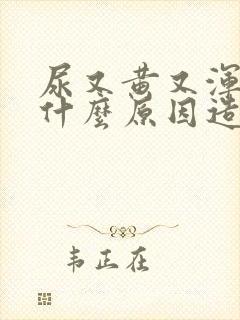 尿又黄又渾
什麼原因造
韦正在